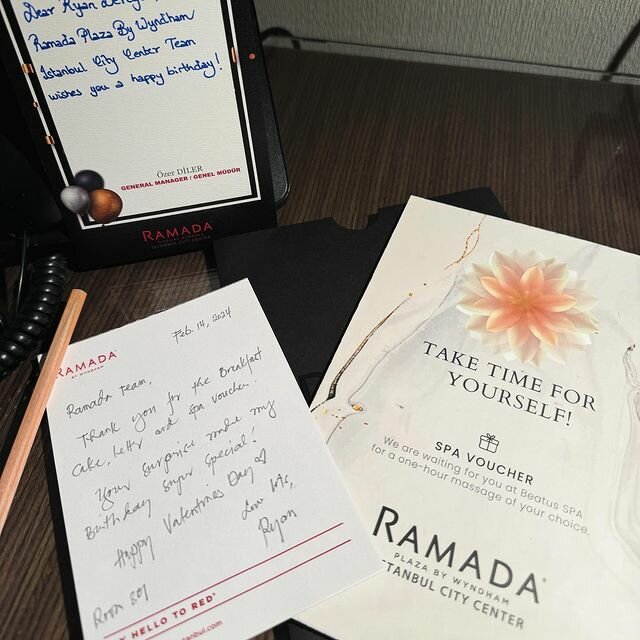 Dear Ryan
Ramada Plaza By Wyndham
Istanbul City Center Team
wishes you a happy birthday!
Özer DİLER
GENERAL MANAGER / GENEL MÜDÜR
RAMADA
ISTANBUL CITY CENTER
RAMADA
BY WYNDHAM
Feb. 14, 2024
Ramada Team,
Thank you for the Breakfast
Cake, letter and spa voucher.
Your surprise made my
Birthday super special!
Happy Valentines Day
Love lots,
Ryan
Room 801
HELLO TO RED
TAKE TIME FOR
YOURSELF!
SPA VOUCHER
We are waiting for you at Beatus SPA
for a one-hour massage of your choice.
RAMADA
PLAZA BY WYNDHAM
ISTANBUL CITY CENTER